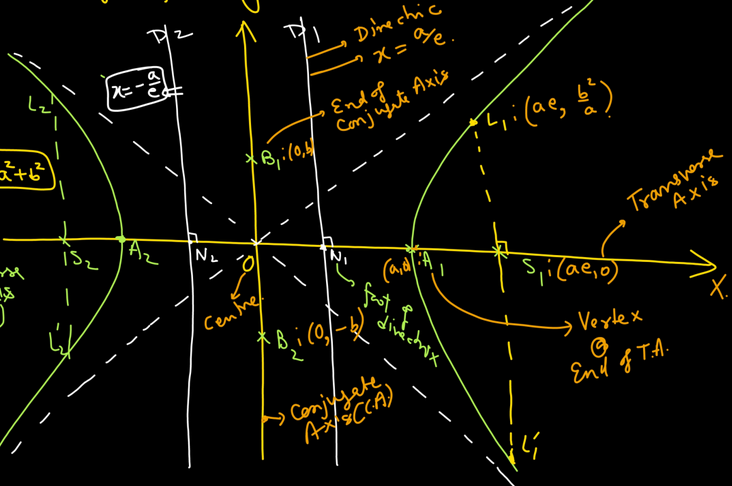 D2
D1
Directric
x = a/e.
x = -a/e
End of
Conjugate Axis
L2
L1 : (ae, b²/a)
B1 : (0, b)
a² + b²
Transverse
Axis
S2
A2
N2
O
N1
(a,0) : A1
S1 : (ae, 0)
X
Centre
foot
of
directrix
L2'
B2 : (0, -b)
Vertex
@
End of T.A.
Conjugate
Axis (C.A)
L1'